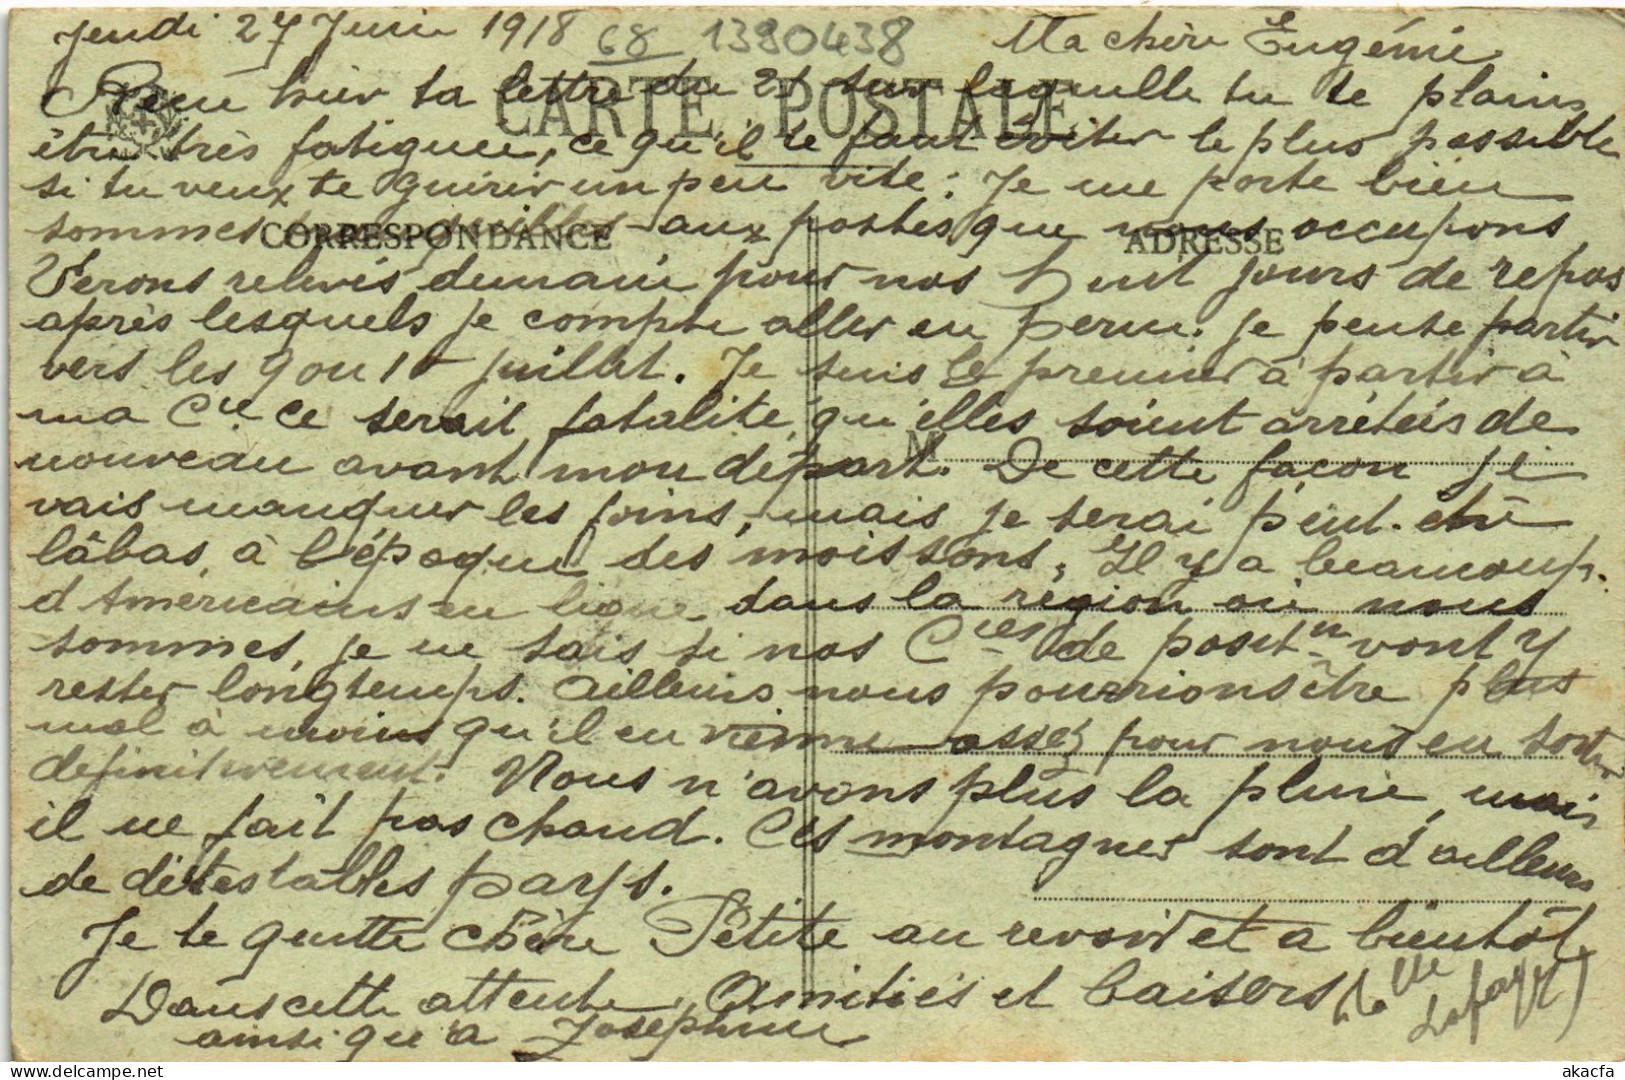 Jeudi 27 Juin 1918 68 1380438 Ma chère Eugénie
Reçu hier ta lettre du 21 sur laquelle tu te plains
CARTE POSTALE
être très fatiguée, ce qu'il te faut éviter le plus possible
si tu veux te guérir un peu vite: Je me porte bien
sommes tranquilles aux postes que nous occupons
CORRESPONDANCE ADRESSE
Serons relevés demain pour nos huit jours de repos
après lesquels je compte aller en perm. je pense partir
vers les 9 ou 10 juillet. Je suis le premier à partir à
ma Cie ce serait fatalité qu'elles soient arrêtées de
nouveau avant mon départ. De cette façon je
M
vais manquer les foins, mais je serai peut-être
làbas, à l'époque des moissons. Il y a beaucoup
d'Américains en ligne dans la région où nous
sommes, je ne sais si nos Cies de positn vont y
rester longtemps. Ailleurs nous pourrions être plus
mal à moins qu'il en vienne assez pour nous en sortir
définitivement. Nous n'avons plus la pluie, mais
il ne fait pas chaud. Ces montagnes sont d'ailleurs
de détestables pays.
Je te quitte chère Petite au revoir et à bientôt
Dans cette attente, Amitiés et baisers
ainsi qu'à Joséphine
Lafayette)
akacfa